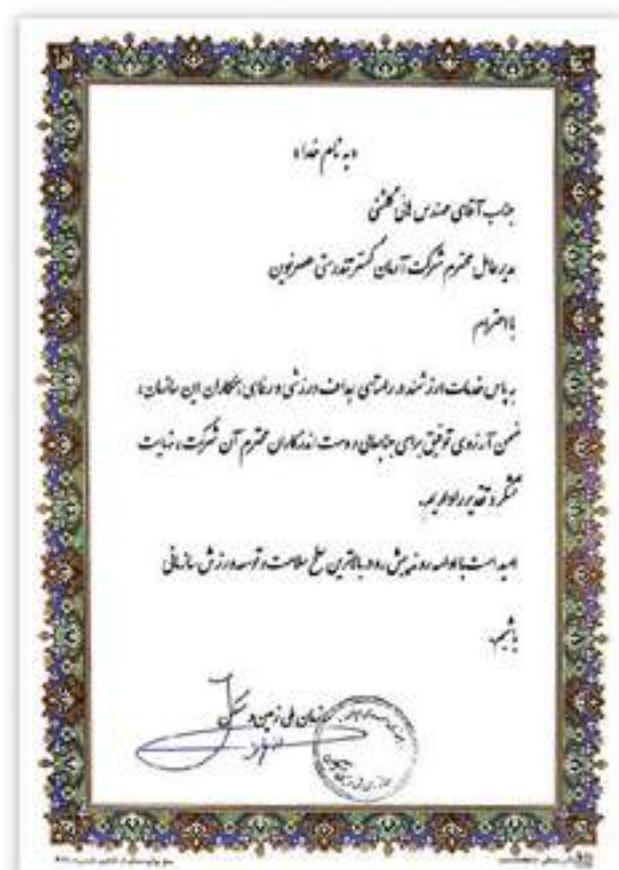 «به نام خدا»
جناب آقای مهندس هانی گلشنی
مدیرعامل محترم شرکت آرمان گستر تندرستی عصر نوین
با احترام
به پاس خدمات ارزشمند در راستای اهداف ورزشی و رفاهی همکاران این سازمان،
ضمن آرزوی توفیق برای جنابعالی و دست اندرکاران محترم آن شرکت، نهایت
تشکر و تقدیر را داریم.
امید است با ادامه روند پیش رو در بالاترین سطح سلامت و توسعه ورزش سازمانی
باشیم.
سازمان ملی زمین و مسکن